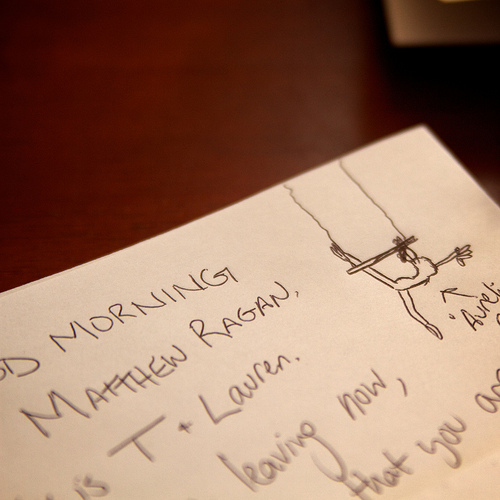 OD MORNING
MATTHEW RAGAN,
is T + Lauren.
leaving now,
that you are
"Aureli